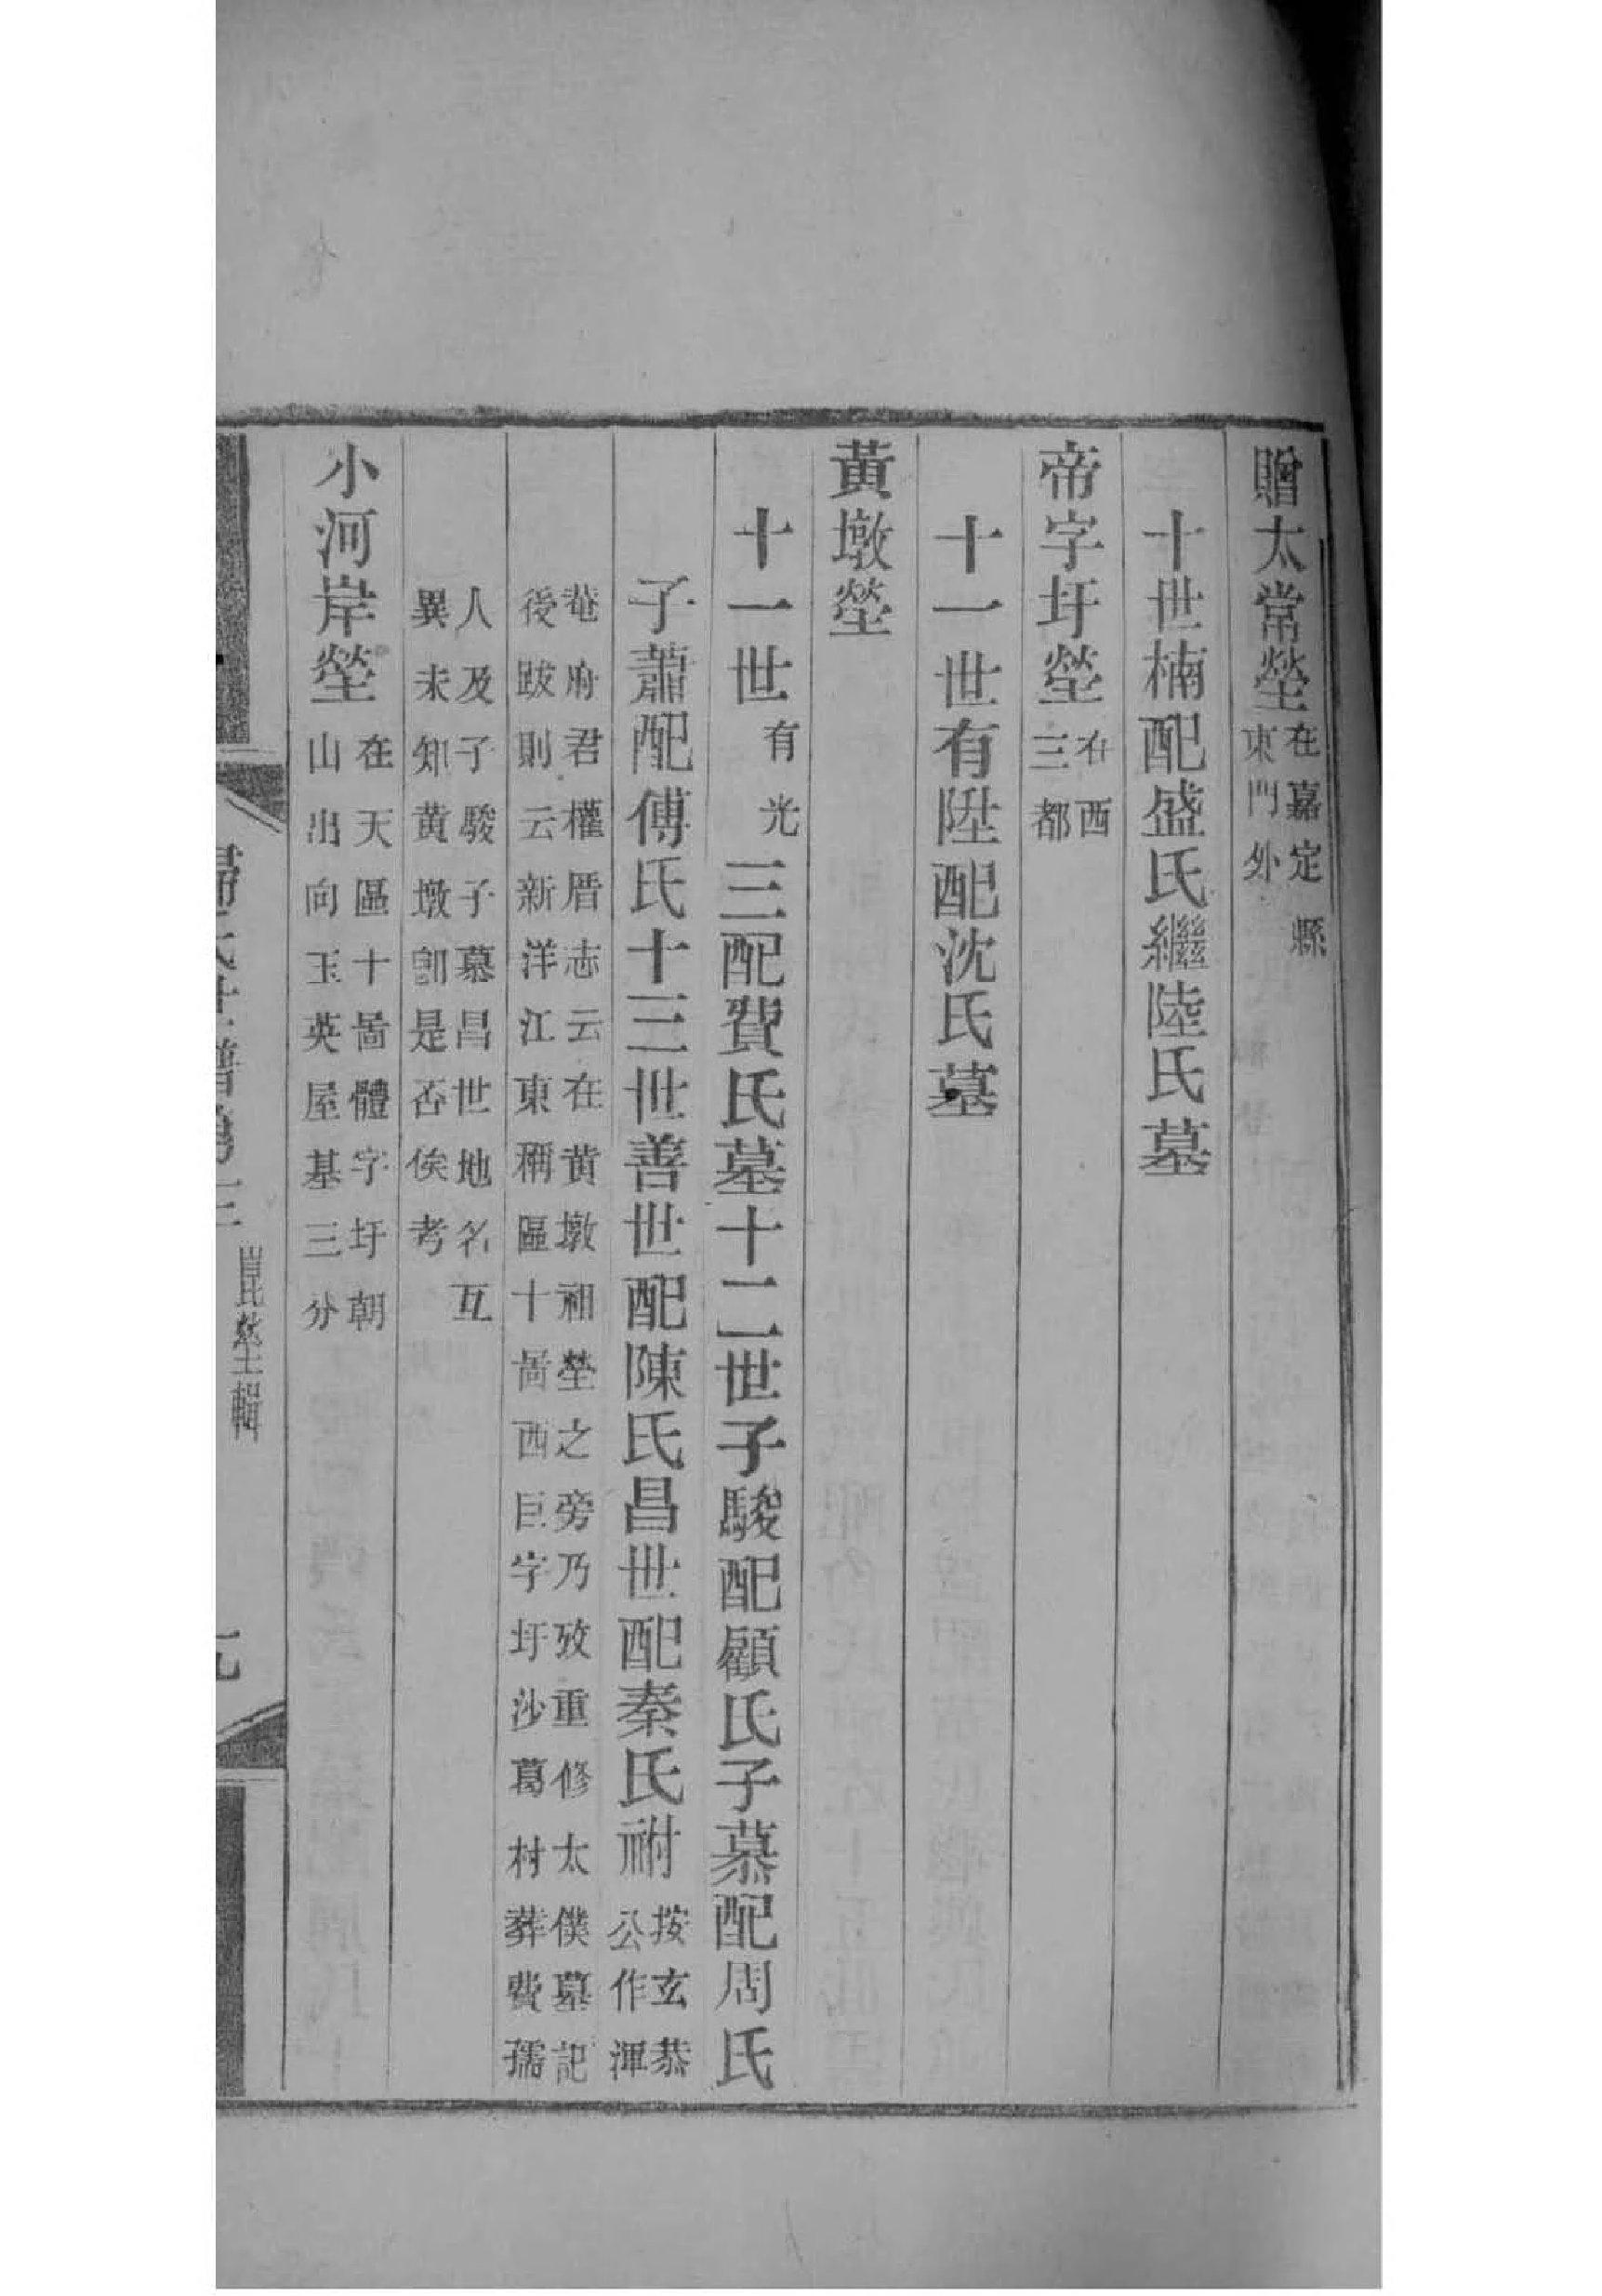 贈太常塋在嘉定縣東門外
十世楠配盛氏繼陸氏墓
帝字圩塋在西三都
十一世有陞配沈氏墓
黃墩塋
十一世有光三配費氏墓十二世子駿配顧氏子慕配周氏
子蕭配傅氏十三世善世配陳氏昌世配秦氏祔按玄恭公作渾
菴府君權厝志云在黄墩祖塋之旁乃攷重修太僕墓記
後跋則云新洋江東稱區十啚西巨字圩沙葛村葬費孺
人及子駿子慕昌世地名互
異未知黄墩卽是否俟考
小河岸塋在天區十啚體字圩朝山出向玉英屋基三分
歸氏世譜 崑塋輯 九